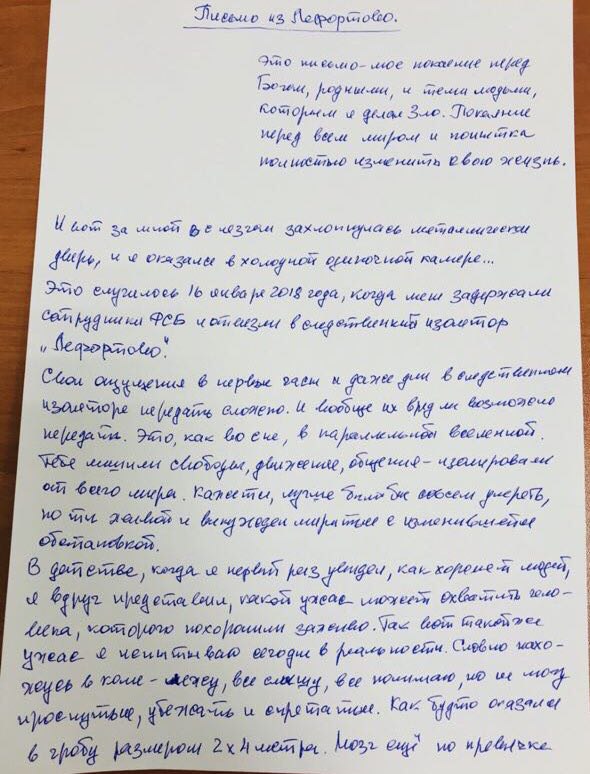 Письмо из Лефортово.
Это письмо-мое покаяние перед
Богом, родными, и теми людьми,
которым я делал Зло. Покаяние
перед всем миром и попытка
полностью изменить свою жизнь.
И вот за мной с лязгом захлопнулась металлическая
дверь, и я оказался в холодной одиночной камере...
Это случилось 16 января 2018 года, когда меня задержали
сотрудники ФСБ и отвезли в следственный изолятор
„Лефортово".
Свои ощущения в первые часы и даже дни в следственном
изоляторе передать сложно. И вообще их вряд ли возможно
передать. Это, как во сне, в параллельной вселенной.
Тебя лишили свободы, движения, общения - изолировали
от всего мира. Кажется, лучше было бы совсем умереть,
но ты живой и вынужден мириться с изменившейся
обстановкой.
В детстве, когда я первый раз увидел, как хоронят людей,
я вдруг представил, какой ужас может охватить чело-
века, которого похоронили заживо. Так вот такой же
ужас я испытываю сегодня в реальности. Словно нахо-
жусь в коме - лежу, все слышу, все понимаю, но не могу
проснуться, убежать и спрятаться. Как будто оказался
в гробу размером 2х4 метра. Мозг ещё по привычке